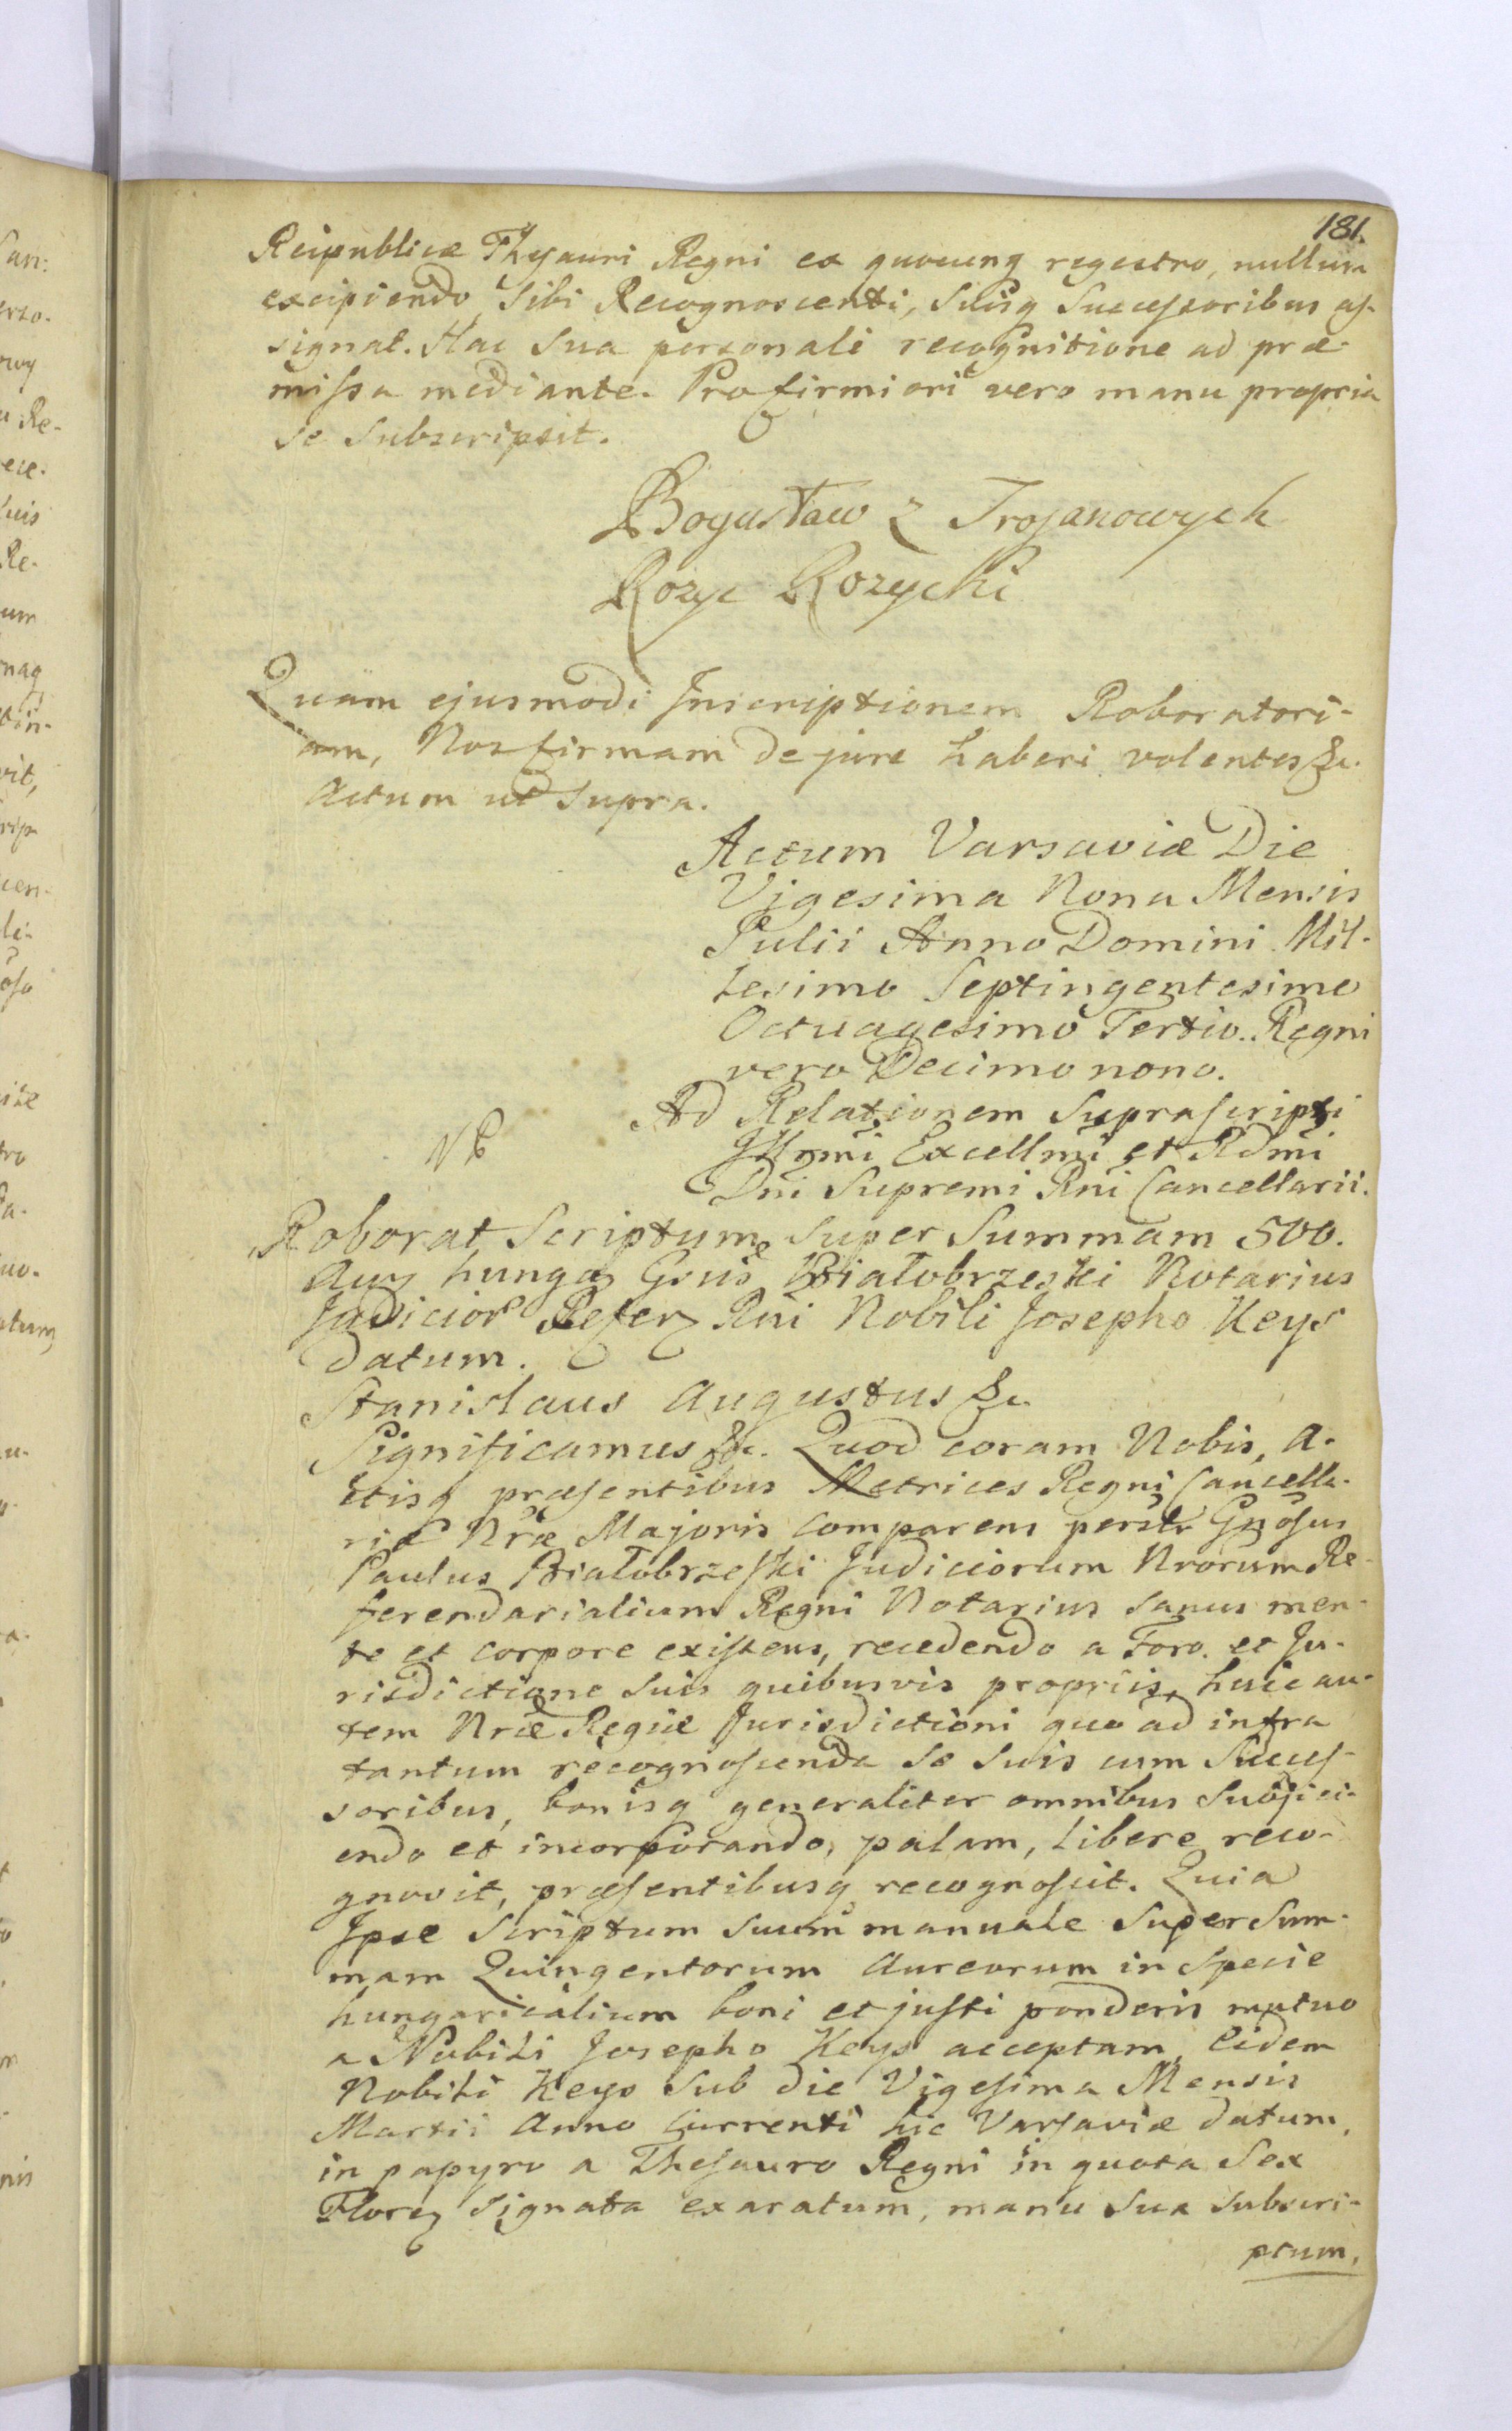 181.
Reipublicæ Thesauri Regni ex quocunq regestro, nullum
excipiendo sibi Recognoscenti, suisq Successoribus as-
signat. Hac sua personali recognitione ad præ-
missa mediante. Pro firmiori vero manu propria
se subscripsit.
Bogusław z Trojanowych
Rozyc Rozycki
Quam ejusmodi Inscriptionem Roboratori-
am, Nos firmam de jure haberi volentes &c.
Actum ut supra.
Actum Varsaviæ Die
Vigesima Nona Mensis
Julii Anno Domini Mil-
lesimo Septingentesimo
Octuagesimo Tertio. Regni
vero Decimo nono.
Ad Relationem Suprascripti
Illmi Excellmi et Rdmi
Dni Supremi Rni Cancellarii.
Roborat Scriptum super Summam 500.
Aur hungar Gsus Białobrzeski Notarius
Judicior Refer Rni Nobili Josepho Keys
datum.
Stanislaus Augustus &c.
Significamus &c. Quod coram Nobis, A-
ctisq præsentibus Metrices Regni Cancella-
riæ Nræ Majoris comparens persltr Gnosus
Paulus Białobrzeski Judiciorum Nrorum Re-
ferendarialium Regni Notarius sanus men-
te et corpore existens, recedendo a Foro et Ju-
risdictione suis quibusvis propriis, huic au-
tem Nræ Regiæ Jurisdictioni quo ad infra
tantum recognoscenda se suis cum Succes-
soribus, bonisq generaliter omnibus subjici-
endo et incorporando, palam, libere reco-
gnovit, præsentibusq recognoscit. Quia
Ipse Scriptum suum manuale super Sum-
mam Quingentorum Aureorum in specie
hungaricalium boni et justi ponderis mutuo
a Nobili Josepho Keys acceptam, Eidem
Nobili Keys sub die Vigesima Mensis
Martii Anno Currenti hic Varsaviæ datum,
in papyro a Thesauro Regni in quota Sex
Floren signata exaratum, manu sua subscri-
ptum,